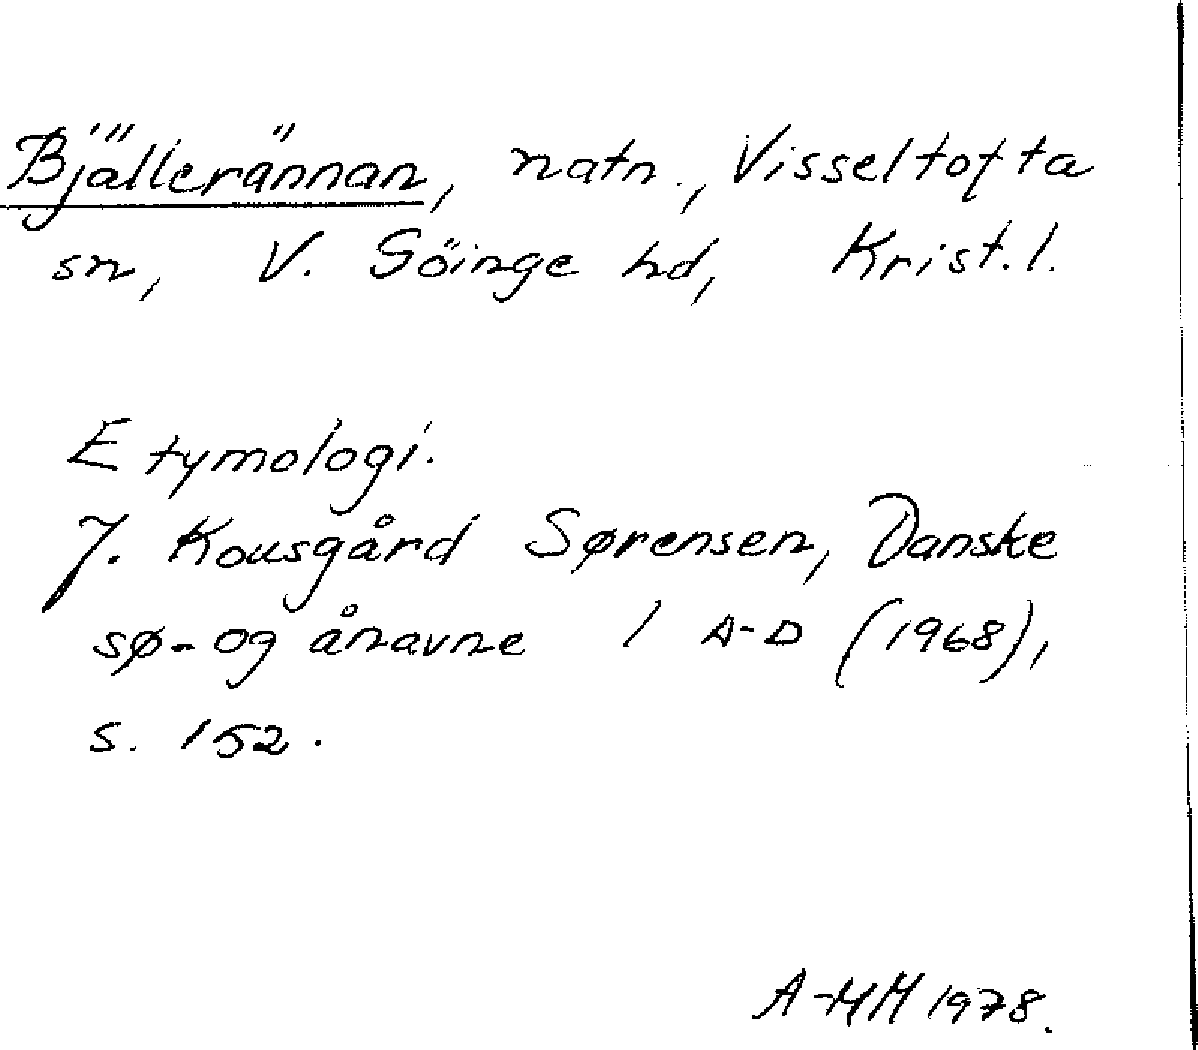 Bjällerännan, natn., Visseltofta
sn, V. Göinge hd, Krist. l.
Etymologi.
J. Kousgård Sørensen, Danske
sø- og ånavne 1 A-D (1968),
s. 152.
A-MH 1978.